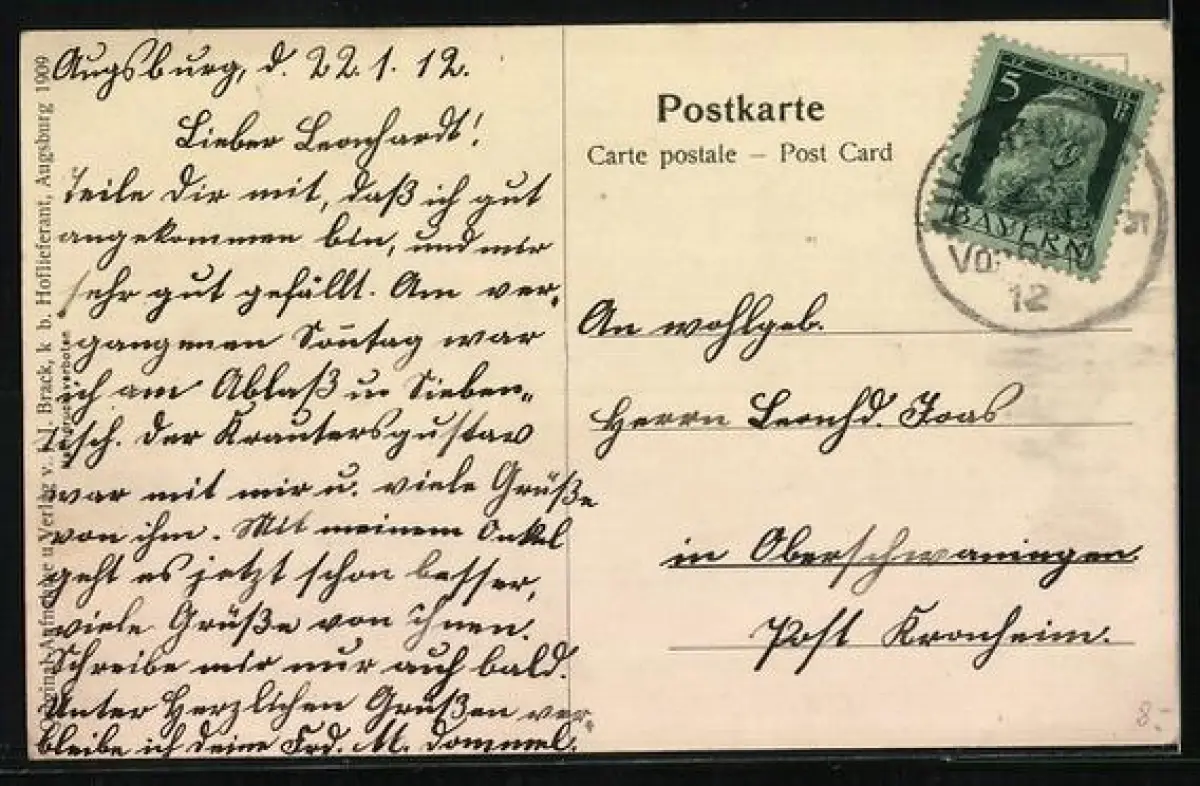 Augsburg, d. 22.1.12.
Lieber Leonhardt!
Teile Dir mit, daß ich gut
angekommen bin, und mir
sehr gut gefällt. Am ver-
gangenen Sonntag war
ich am Ablaß u. Sieben-
tisch. Der Krautersgustav
war mit mir u. viele Grüße
von ihm. Mit meinem Onkel
geht es jetzt schon besser,
viele Grüße von Ihnen.
Schreibe mir nur auch bald.
Unter Herzlichen Grüßen ver-
bleibe ich deine Frd. M. Dommel.
Original-Aufnahme u Verlag v. J. Brack, k b. Hoflieferant, Augsburg 1909
Nachdruck verboten
Postkarte
Carte postale – Post Card
5
BAYERN
VO
12
An wohlgeb.
Herrn Leonhd. Joas
in Oberschwaningen
Post Kronheim.
8.-